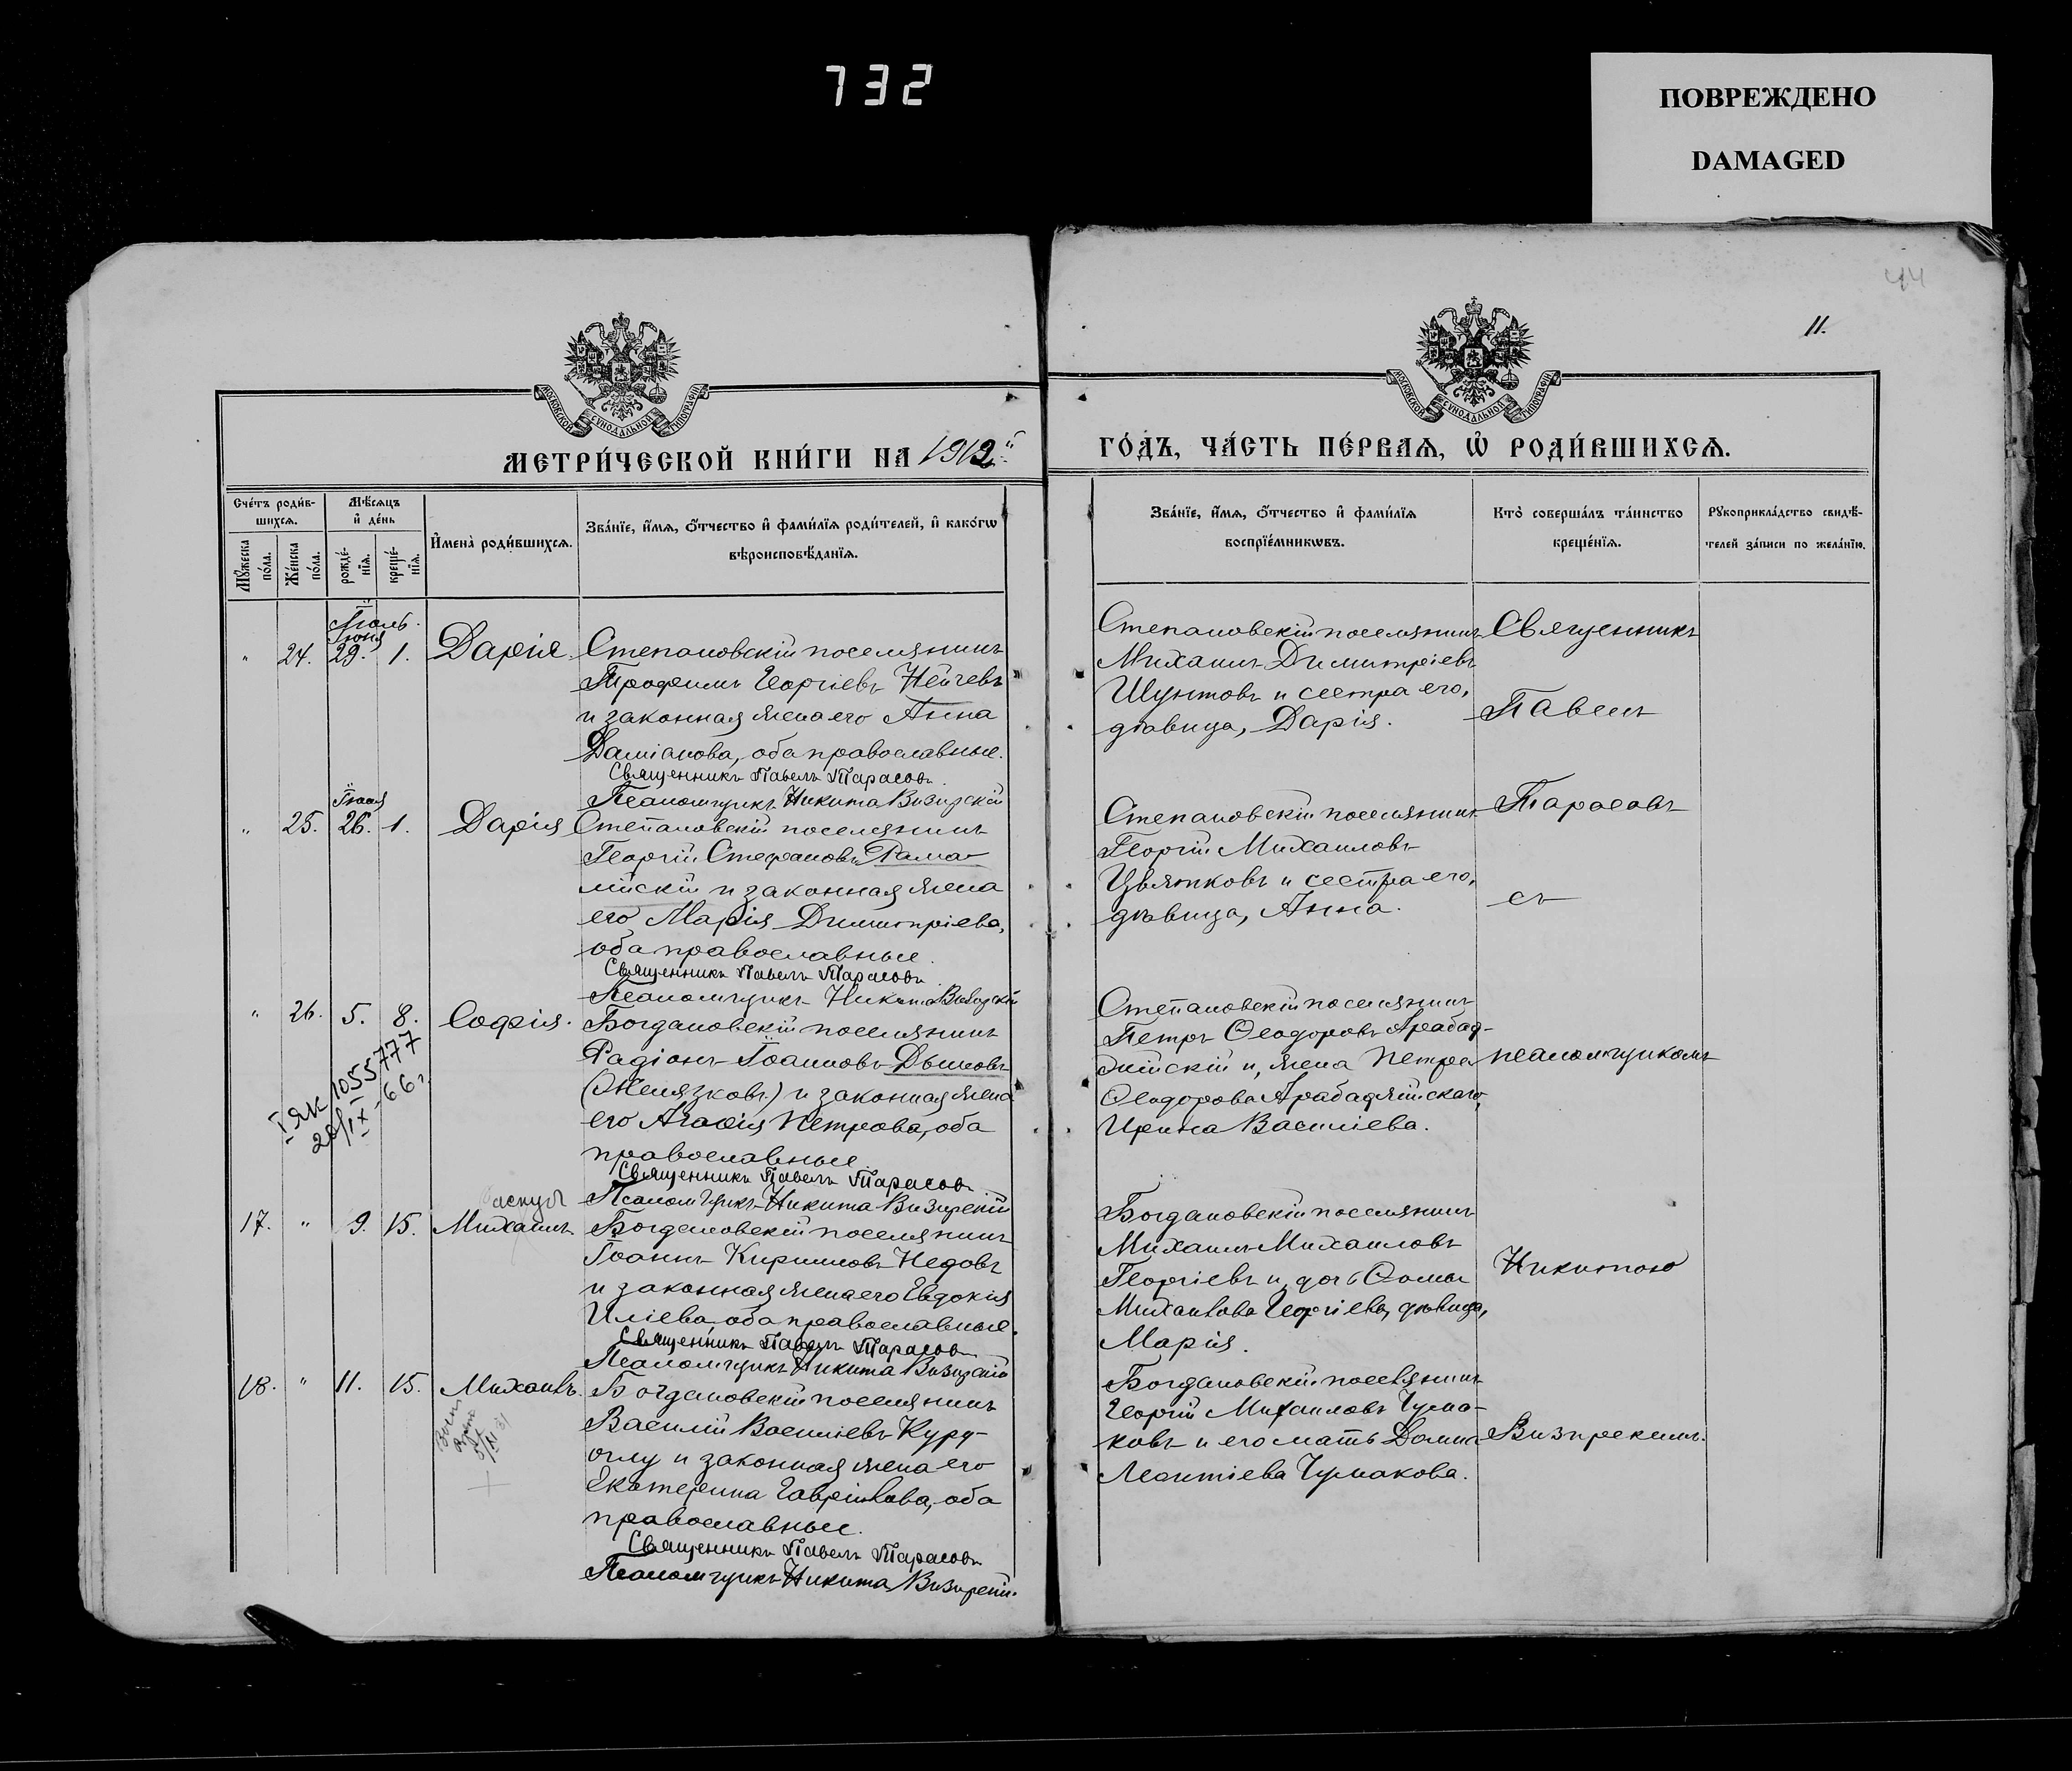 732
ПОВРЕЖДЕНО
DAMAGED
44
11.
МОСКОВСКОЙ СѴНОДАЛЬНОЙ ТИПОГРАФІИ
МОСКОВСКОЙ СѴНОДАЛЬНОЙ ТИПОГРАФІИ
МЕТРИ́ЧЕСКОЙ КНИ́ГИ НА 1912й
ГО́ДЪ, ЧА́СТЬ ПЕ́РВАЯ, Ѡ҆ РОДИ́ВШИХСЯ.
Сче́тъ роди́в-
шихся.
Мѣ́сяцъ
и҆ де́нь
Му́жеска по́ла.
Же́нска по́ла.
рожде́-нїя.
креще́-нїя.
И҆мена̀ роди́вшихся.
Зва́нїе, и҆́мя, ѻ҆́тчество и҆ фами́лїя роди́телей, и҆ како́гѡ
вѣроисповѣ́данїя.
Зва́нїе, и҆́мя, ѻ҆́тчество и҆ фами́лїя
воспрїе́мникѡвъ.
Кто̀ соверша́лъ та́инство
креще́нїя.
Рукоприкла́дство свидѣ́-
телей за́писи по жела́нїю.
Іюль.
Іюня
" 24. 29. 1. Дарія. Степановскій поселянинъ
Трофимъ Георгіевъ Нейчевъ
и законная жена его Анна
Даміанова, оба православные.
Священникъ Павелъ Тарасовъ
Псаломщикъ Никита Визирскій
Степановскій поселянинъ
Михаилъ Димитріевъ
Шунтовъ и сестра его,
дѣвица, Дарія.
Священникъ
Павелъ
Іюня
" 25. 26. 1. Дарія Степановскій поселянинъ
Георгій Стефановъ Рама-
лійскій и законная жена
его Марія Димитріева,
оба православные.
Священникъ Павелъ Тарасовъ
Псаломщикъ Никита Визирскій
Степановскій поселянинъ
Георгій Михаиловъ
Цвятковъ и сестра его,
дѣвица, Анна.
Тарасовъ
съ
" 26. 5. 8. Софія. Богдановскій поселянинъ
Радіонъ Іоанновъ Дымовъ
(Желязковъ) и законная жена
его Агафія Петрова, оба
православные
Священникъ Павелъ Тарасовъ
Псаломщикъ Никита Визирскій
ІЯК 1055777
20/IX-66г.
Степановскій поселянинъ
Петръ Ѳеодоровъ Арабад-
жійскій и, жена Петра
Ѳеодорова Арабаджійскаго,
Ирина Василіева.
псаломщикомъ
17. " 9. 15. Михаилъ Богдановскій поселянинъ
Іоаннъ Кирилловъ Недовъ
и законная жена его Евдокія
Иліева, оба православные.
Священникъ Павелъ Тарасовъ
Псаломщикъ Никита Визирскій
Богдановскій поселянинъ
Михаилъ Михаиловъ
Георгіевъ и дочь Ѳомы
Михаилова Георгіева, дѣвица,
Марія.
Никитою
18. " 11. 15. Михаилъ. Богдановскій поселянинъ
Василій Василіевъ Куру-
оглу и законная жена его
Екатерина Гавріилова, оба
православные.
Священникъ Павелъ Тарасовъ
Псаломщикъ Никита Визирскій.
Богдановскій поселянинъ
Георгій Михаиловъ Чума-
ковъ и его мать Домна
Леонтіева Чумакова.
Визирскимъ.